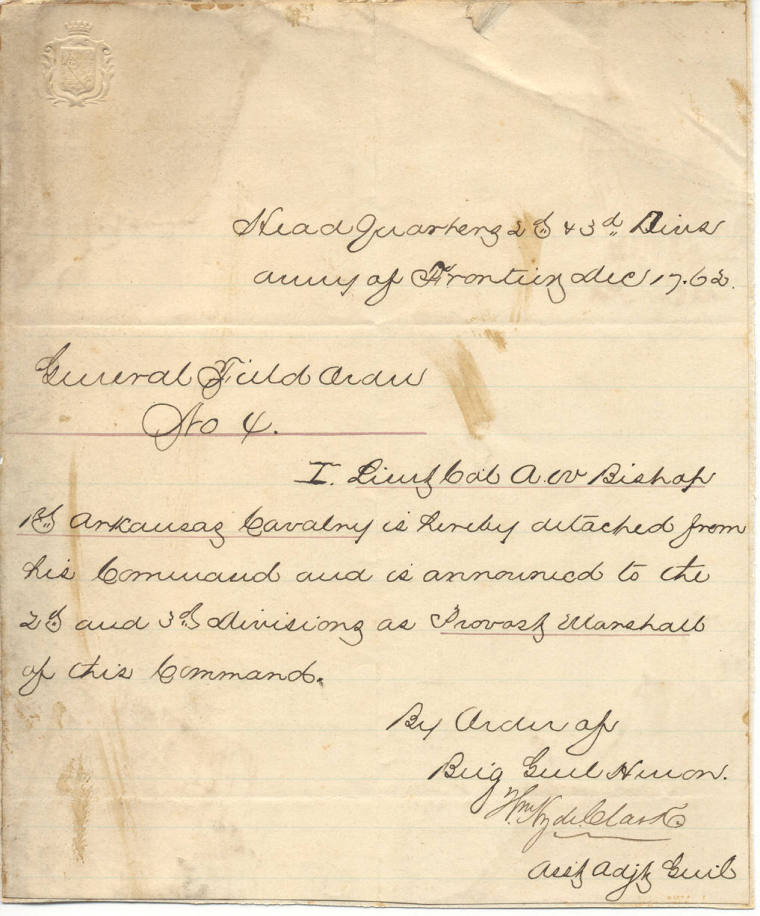 Head Quarters 2d & 3d Divs
Army of Frontier Dec 17. 62.
General Field Order
No 4.
I. Lieut Col A. W Bishop
1st Arkansas Cavalry is hereby detached from
his Command and is announced to the
2d and 3d Divisions as Provost Marshall
of this Command.
By Order of
Brig Genl Heron.
Wm Hyde Clark
Asst Adjt Genl